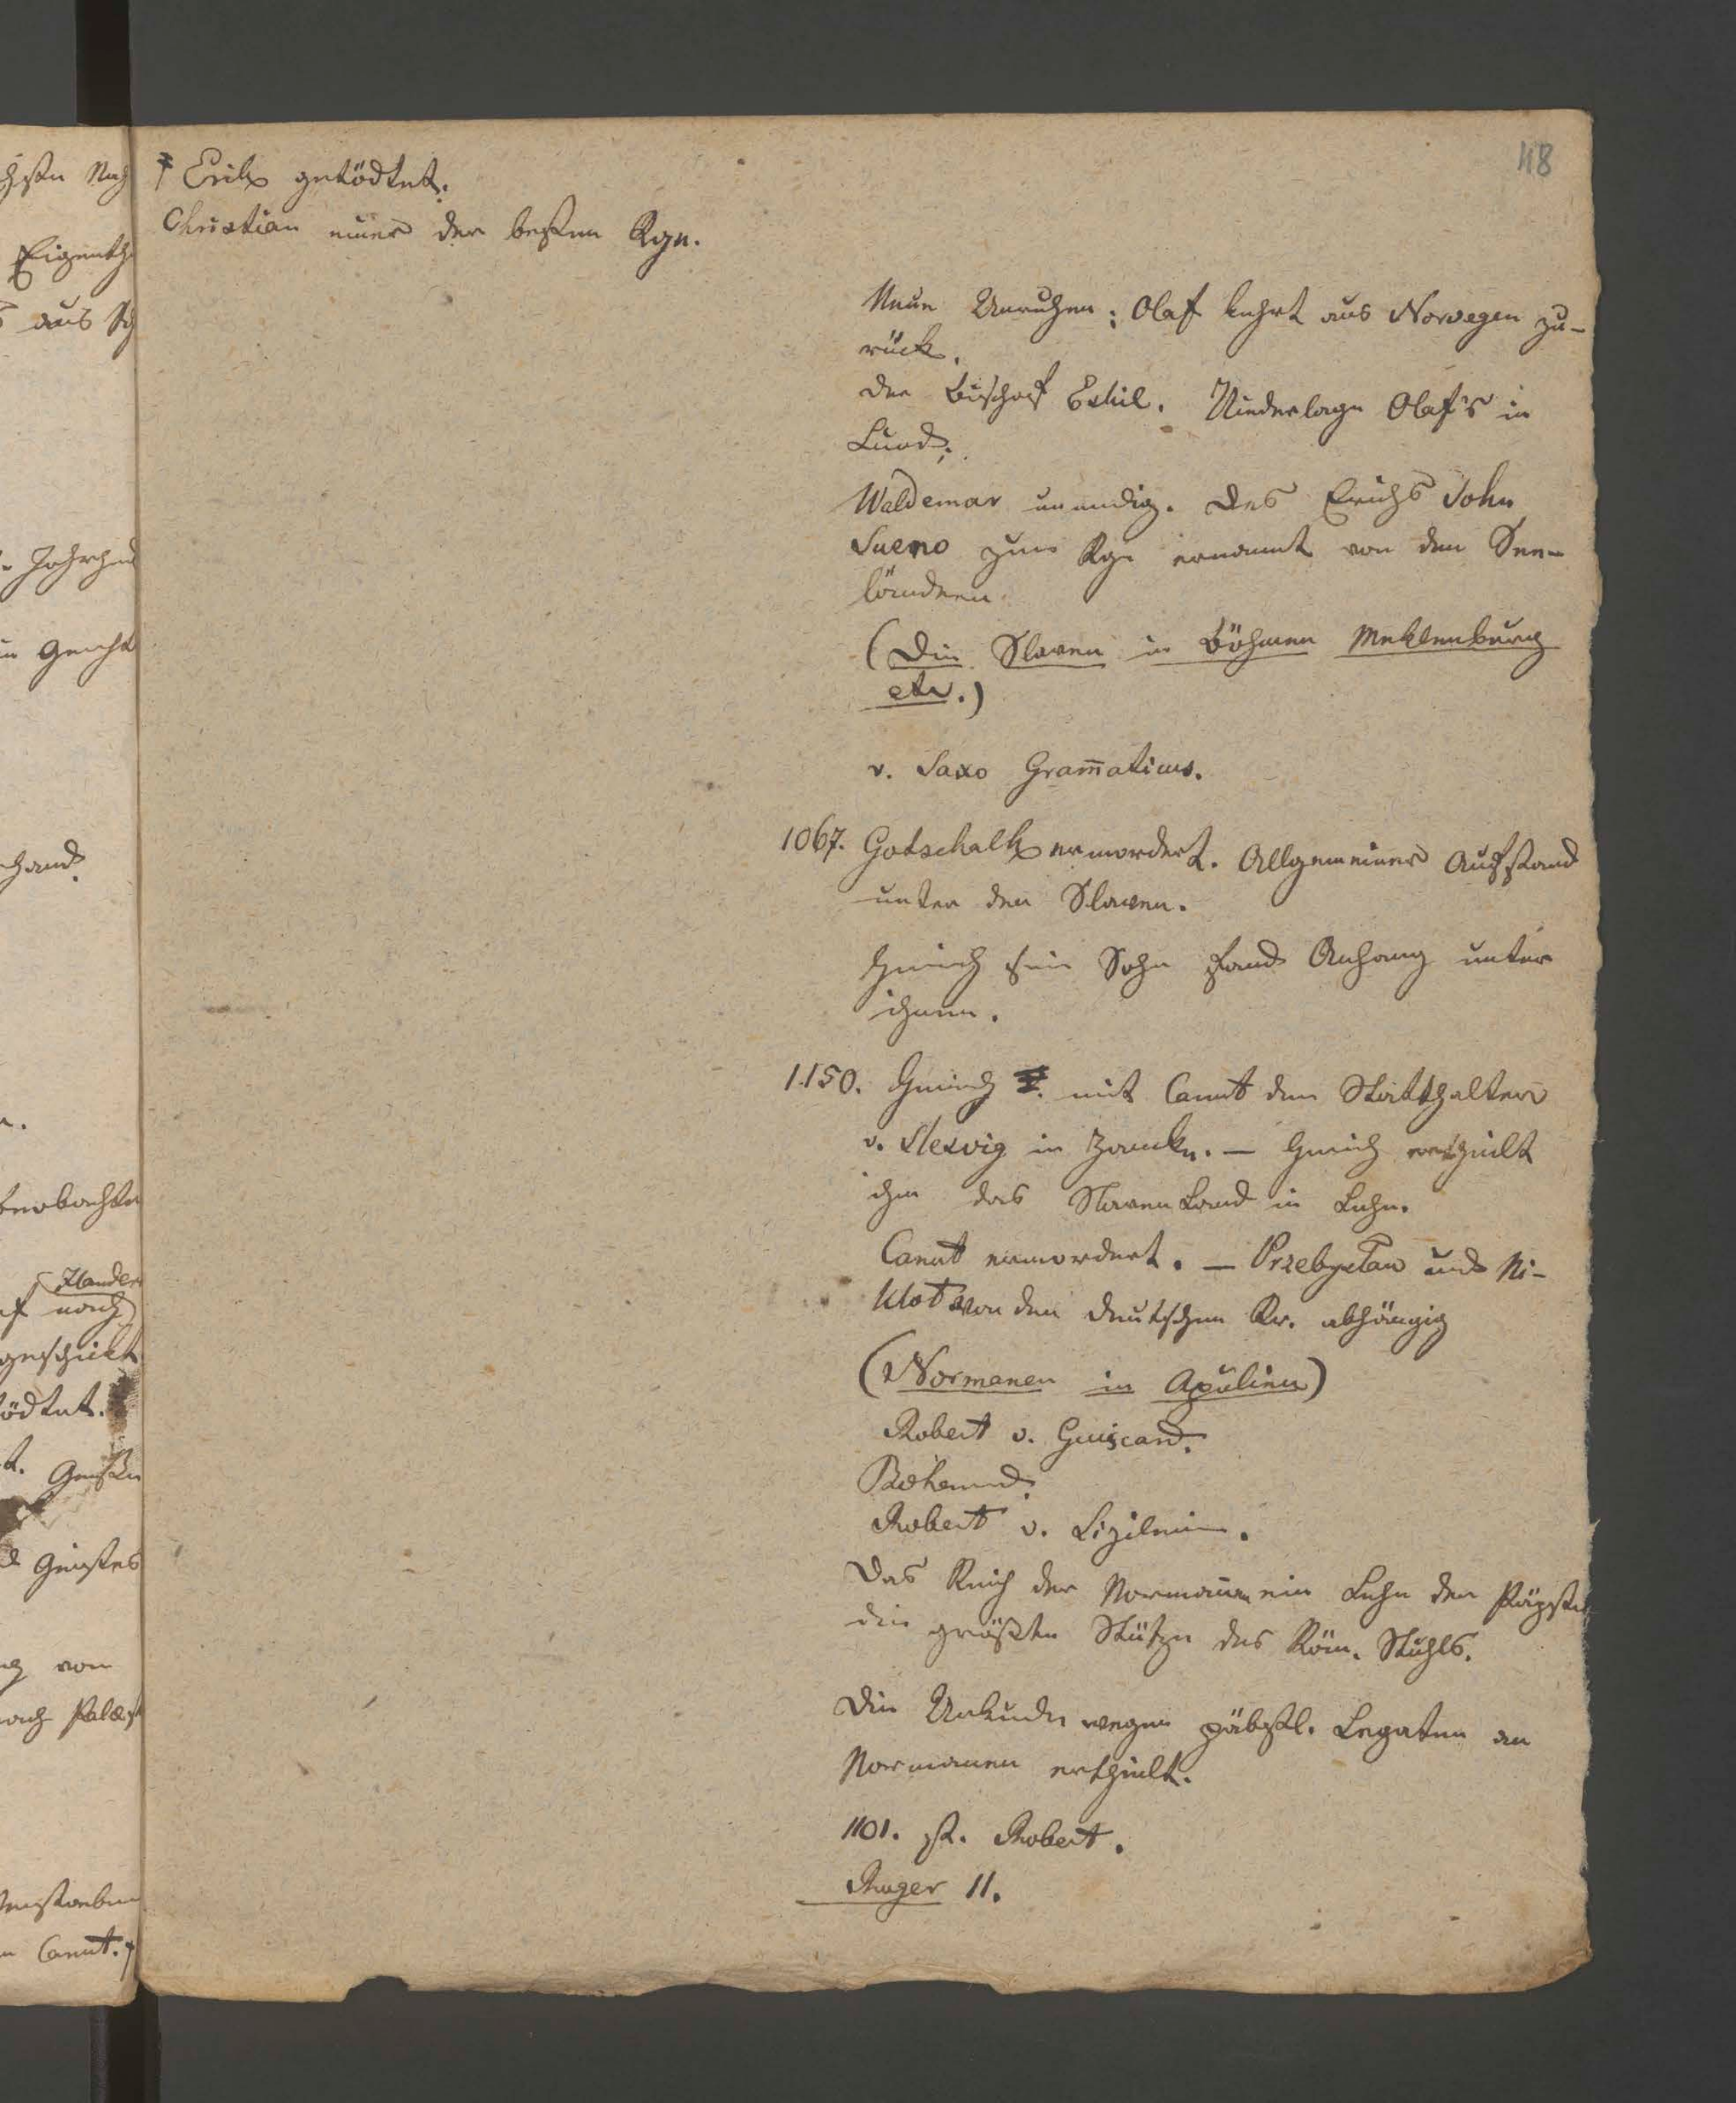 48
chsten Nach
Eigenth
aus
Jahrhund
Gericht
hand.
beobachten
Flander
nach
geschickt
tödtet.
Geistes
von
nach Palæst
Canut. †
† Erik getödtet.
Christian einer der besten Kge.
Neue Unruhen; Olaf kehrt aus Norvegen zu-
rück.
der Bischof Eskil. Niederlage Olaf's in
Lund;
Waldemar unmdig. Des Erichs Sohn
Sueno zum Kge ernannt von den See-
ländern
(Die Slaven in Böhmen Meklenburg
etc.)
v. Saxo Gram̅aticus.
1067. Gotschalk ermordert. Allgemeiner Aufstand
unter den Slaven.
Heinrich sein Sohn fand Anhang unter
ihnen.
1150. Heinrich mit Canut dem Statthalter
v. Slesvig in Zanke. — Heinrich ertheilt
ihm das Slaven Land in Lehn.
Canut ermordert. — Przebyslav und Ni-
klot von den deutschen Kr. abhängig
(Normanen in Apulien)
Robert v. Guiscard.
Bohemund.
Robert v. Sizilien.
Das Reich der Normannen ein Lehn der Päpste
die größte Stütze des Röm. Stuhls.
Die Urkunde wegen päbstl. Legaten an
Normanen ertheilt.
1101. st. Robert.
Ruger II.